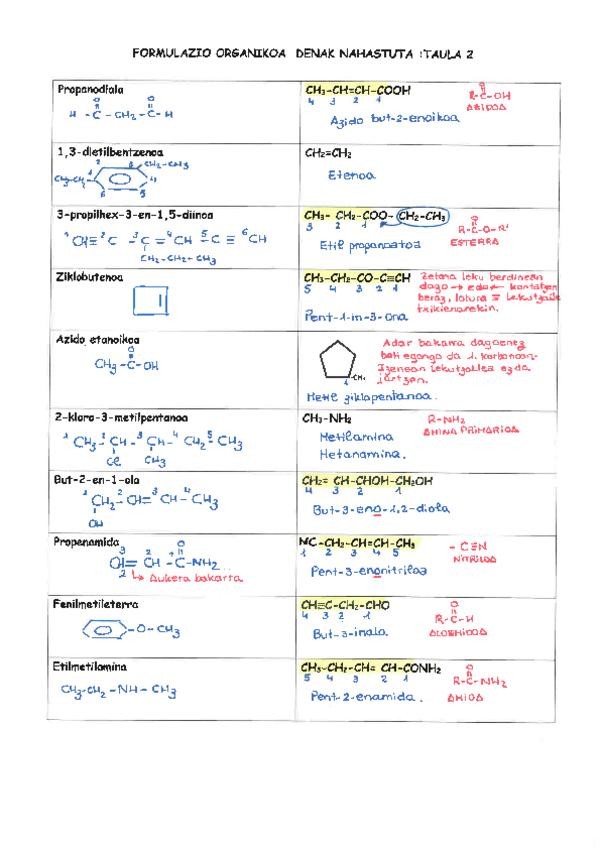 FORMULAZIO ORGANIKOA DENAK NAHASTUTA : TAULA 2
Propanodiala
O O
H - C - CH2 - C - H
CH3-CH=CH-COOH
4 3 2 1
Azido but-2-enoikoa
O
R-C-OH
AZIDOA
1,3-dietilbentzenoa
CH2-CH3
CH3-CH2
CH2=CH2
Etenoa
3-propilhex-3-en-1,5-diinoa
1 CH≡ 2 C - 3 C = 4 CH - 5 C ≡ 6 CH
CH2-CH2-CH3
CH3- CH2-COO- CH2-CH3
3 2 1
Etil propanoatoa
O
R-C-O-R'
ESTERRA
Ziklobutenoa
CH3-CH2-CO-C≡CH
5 4 3 2 1
Pent-1-in-3-ona
Zetana leku berdinean
dago → edo ← kontatzen
beraz, lotura ≡ lekutzaile
txikienarekin.
Azido etanoikoa
O
CH3-C-OH
1 CH3
Metil ziklopentanoa.
Adar bakarra dagoenez
beti egongo da 1. karbonoan.
Izenean lekutzailea ez da
jartzen.
2-kloro-3-metilpentanoa
1 CH3 - 2 CH - 3 CH - 4 CH2 - 5 CH3
Cl CH3
CH3-NH2
Metilamina
Metanamina.
R-NH2
AMINA PRIMARIOA
But-2-en-1-ola
1 CH2 - 2 CH = 3 CH - 4 CH3
OH
CH2= CH-CHOH-CH2OH
4 3 2 1
But-3-eno-1,2-diola
Propenamida
3 2 1 O
CH = CH - C-NH2
2 → Aukera bakarra
NC -CH2-CH=CH-CH3
1 2 3 4 5
Pent-3-enonitriloa
- C≡N
NITRILOA
Fenilmetileterra
-O-CH3
CH≡C-CH2-CHO
4 3 2 1
But-3-inala
O
R-C-H
ALDEHIDOA
Etilmetilamina
CH3-CH2-NH-CH3
CH3-CH2-CH= CH-CONH2
5 4 3 2 1
Pent-2-enamida.
O
R-C-NH2
AMIDA